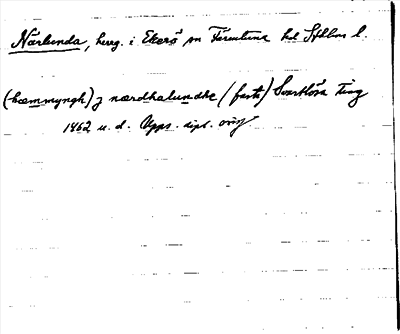 Närlunda, herrg. i Ekerö sn Färentuna hd Sthlms l.
(hæmmyngh) j nærdhalundhe (fastb) Svartlösa ting
1462 u. d. Upps. dipl. orig.